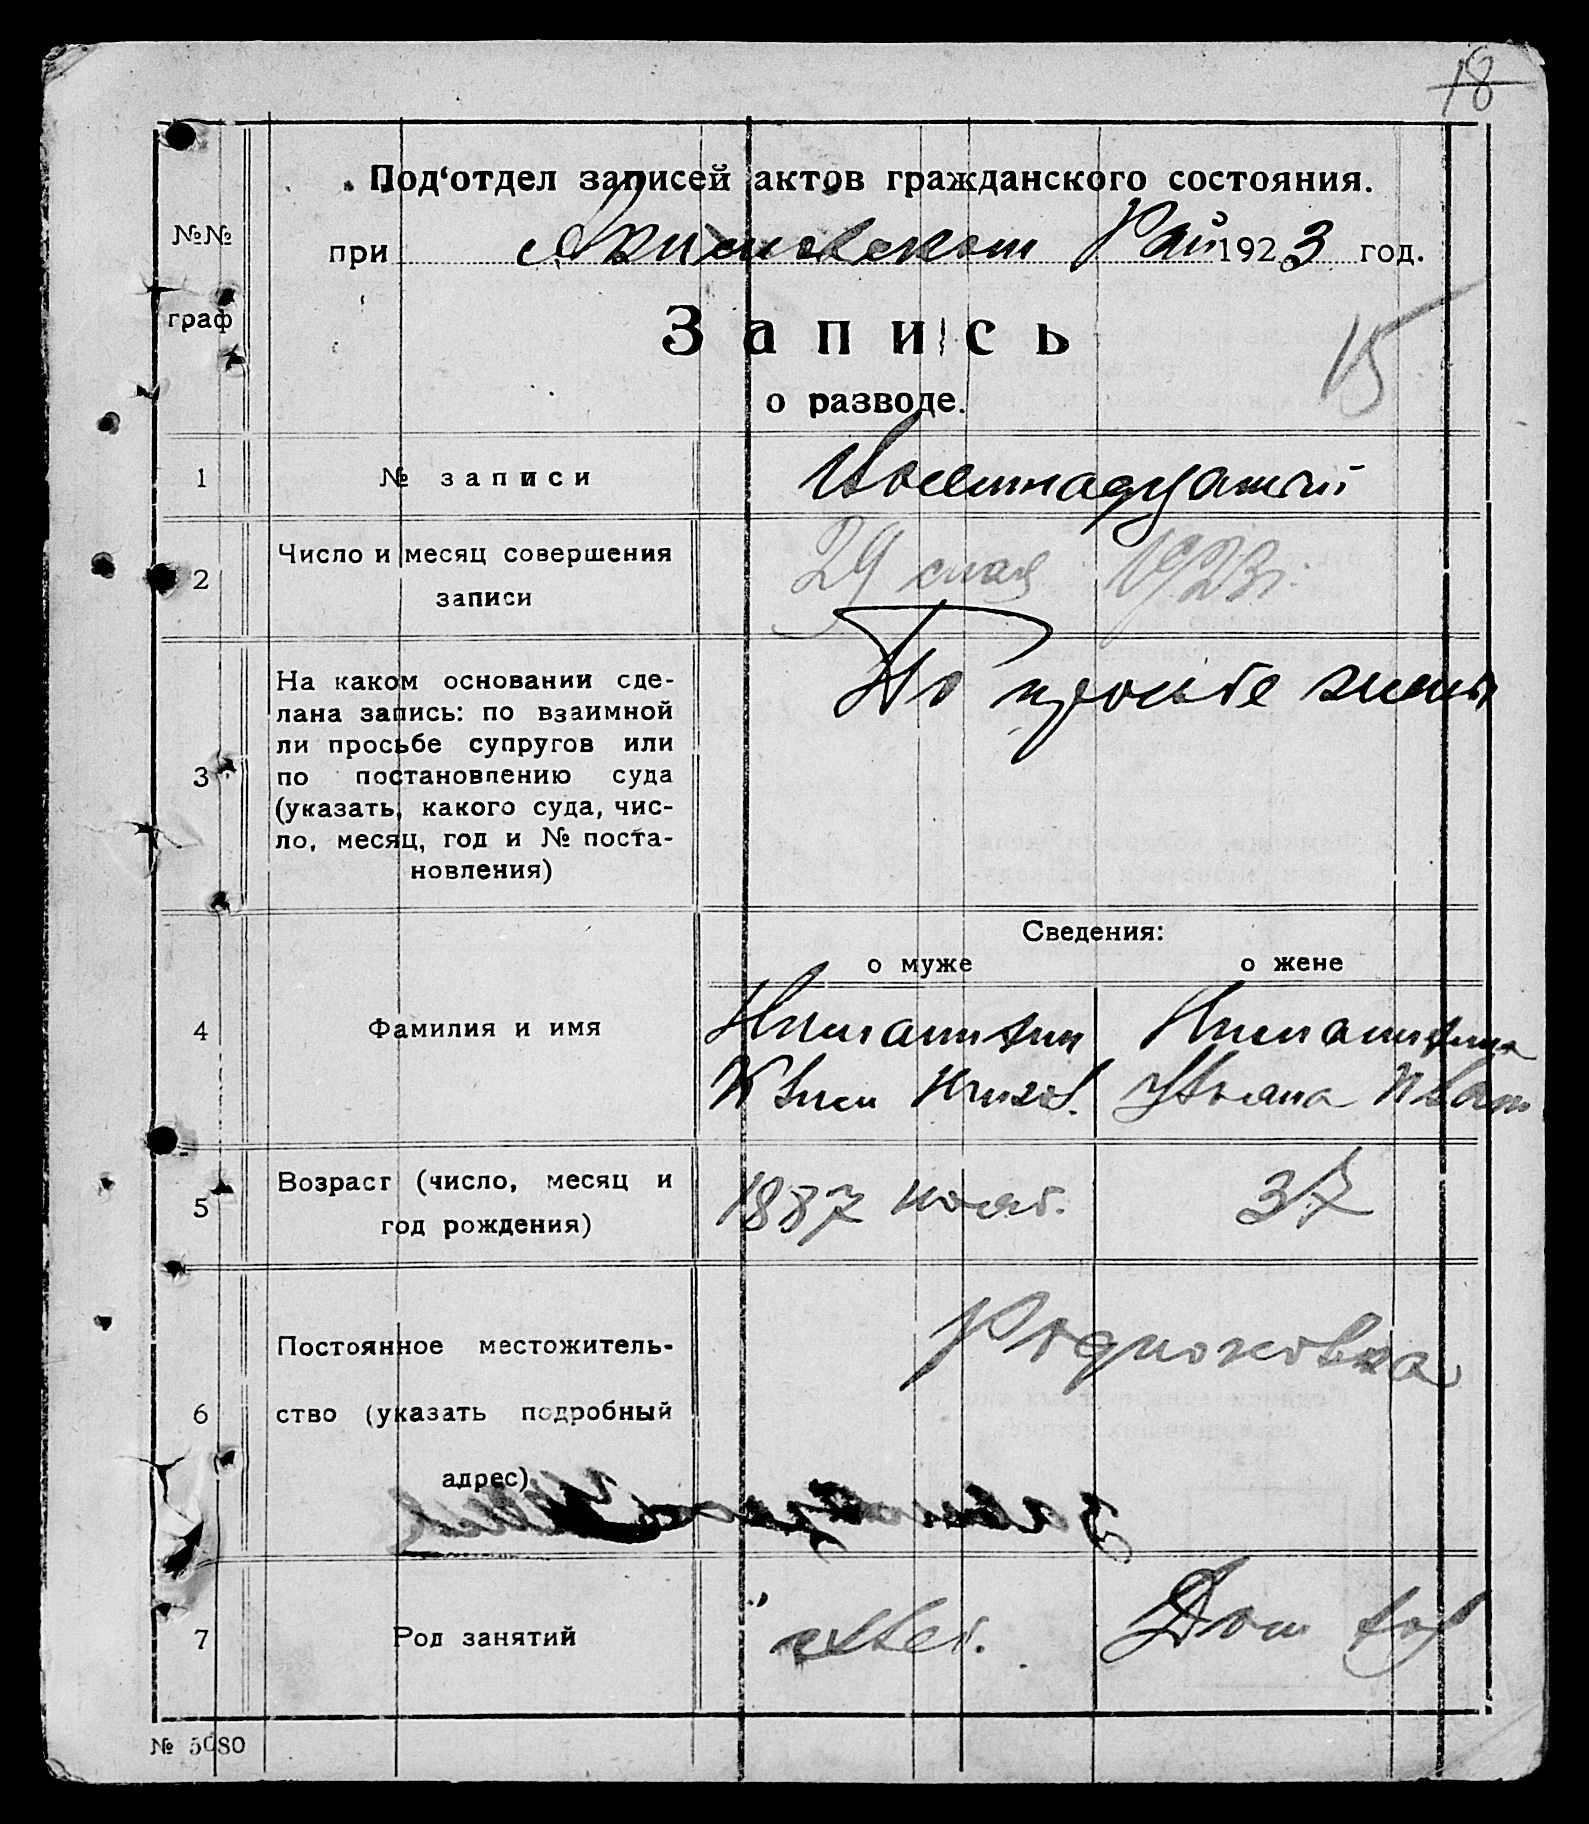 18
Под‘отдел записей актов гражданского состояния.
№№
при Акимовском Рай 1923 год.
граф
Запись
15
о разводе.
1 № записи Восемнадцатый
2 Число и месяц совершения
записи
29 мая 1923 г.
3 На каком основании сде-
лана запись: по взаимной
ли просьбе супругов или
по постановлению суда
(указать, какого суда, чис-
ло, месяц, год и № поста-
новления)
По просьбе жены
Сведения:
о муже о жене
4 Фамилия и имя
Ульяна Иван
5 Возраст (число, месяц и
год рождения)
1887 нояб. 37
6 Постоянное местожитель-
ство (указать подробный
адрес)
Родионовка
7 Род занятий
Дом хоз
№ 5080